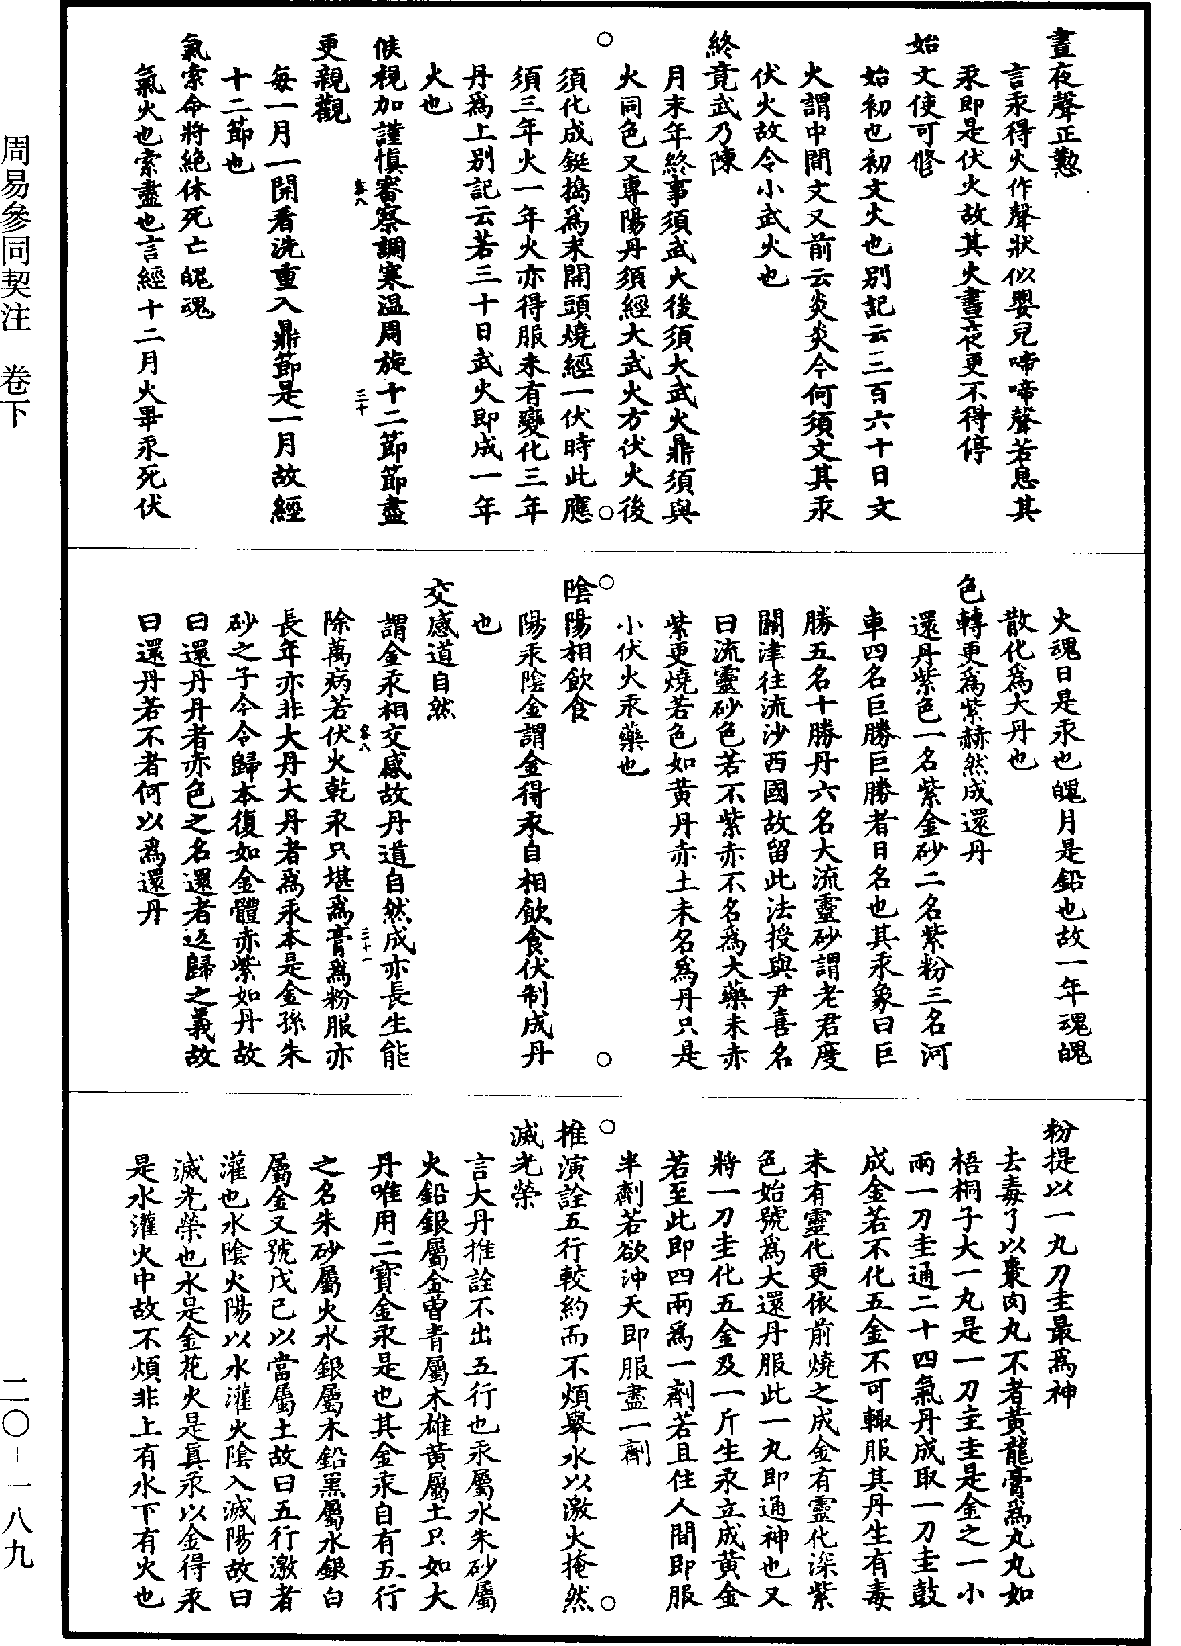 晝夜聲正懃
言汞得火作聲狀似嬰兒啼啼聲若息其
汞即是伏火故其火晝夜更不得停
始文使可修
始初也初文火也別記云三百六十日文
火謂中間文又前云炎炎今何須文其汞
伏火故令小武火也
終竟武乃陳
月末年終事須武火後須大武火鼎須與
火同色又專陽丹須經大武火方伏火後
須化成鋌擣爲末開頭燒經一伏時此應
須三年火一年火亦得服未有變化三年
丹爲上別記云若三十日武火即成一年
火也
候視加謹慎審察調寒温周旋十二節節盡
更親觀
每一月一開看洗重入鼎節是一月故經
十二節也
氣索命將絶休死亡魄魂
氣火也索盡也言經十二月火畢汞死伏
叁八
三十
火魂日是汞也魄月是鉛也故一年魂魄
散化為大丹也
色轉更為紫赫然成還丹
還丹紫色一名紫金砂二名紫粉三名河
車四名巨勝巨勝者日名也其汞象曰巨
勝五名十勝丹六名大流靈砂謂老君度
關津往流沙西國故留此法授與尹喜名
曰流靈砂色若不紫赤不名為大藥未赤
紫更燒若色如黄丹赤土未名為丹只是
小伏火汞藥也
陰陽相飲食
陽汞陰金謂金得汞自相飲食伏制成丹
也
交感道自然
謂金汞相交感故丹道自然成亦長生能
除萬病若伏火乾汞只堪爲膏爲粉服亦
長年亦非大丹大丹者為汞本是金孫朱
砂之子今令歸本復如金體赤紫如丹故
曰還丹丹者赤色之名還者返歸之義故
曰還丹若不者何以爲還丹
叁八
三十一
粉提以一丸刀圭最爲神
去毒了以棗肉丸不者黄龍膏爲丸丸如
梧桐子大一丸是一刀圭圭是金之一小
兩一刀圭通二十四氣丹成取一刀圭鼓
成金若不化五金不可輙服其丹生有毒
未有靈化更依前燒之成金有靈化深紫
色始號爲大還丹服此一丸即通神也又
將一刀圭化五金及一斤生汞立成黄金
若至此即四兩爲一劑若且住人間即服
半劑若欲沖天即服盡一劑
推演詮五行較約而不煩舉水以激火掩然
滅光榮
言大丹推詮不出五行也汞屬水朱砂屬
火鉛銀屬金曾青屬木雄黄屬土只如大
丹唯用二寶金汞是也其金汞自有五行
之名朱砂屬火水銀屬木鉛黑屬水銀白
屬金又號戊己以當屬土故曰五行激者
灌也水陰火陽以水灌火陰入滅陽故曰
滅光榮也水是金花火是真汞以金得汞
是水灌火中故不煩非上有水下有火也
周易參同契注　卷下
二〇－一八九